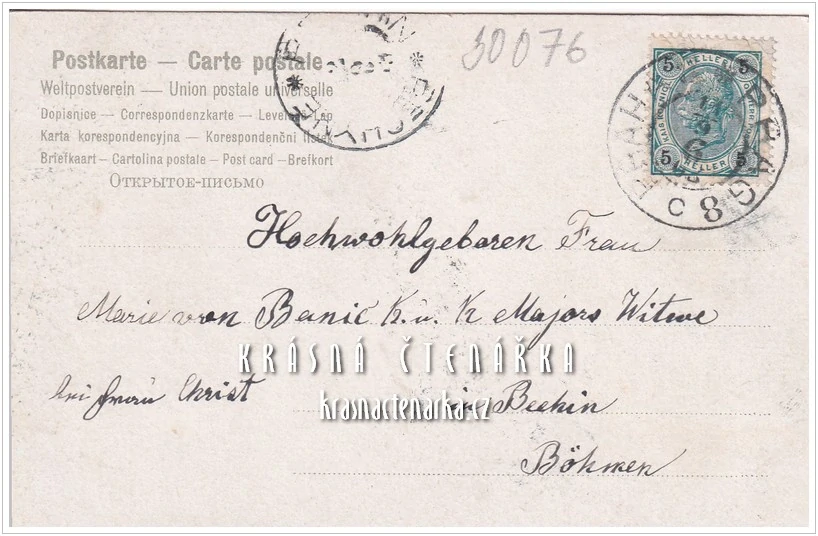 30076
Postkarte — Carte postale
Weltpostverein — Union postale universelle
Dopisnice — Correspondenzkarte — Levelező-Lap
Karta korespondencyjna — Korespondenční lístek
Briefkaart — Cartolina postale — Post card — Brefkort
Открытое-письмо
5 HELLER 5
5 HELLER 5
PRAG
PRAHA
8
Hochwohlgeboren Frau
Marie von Banić K. u. K Majors Witwe
KRÁSNÁ ČTENÁŘKA
bei Frau Christ in Bechin
krasnactenarka.cz
Böhmen